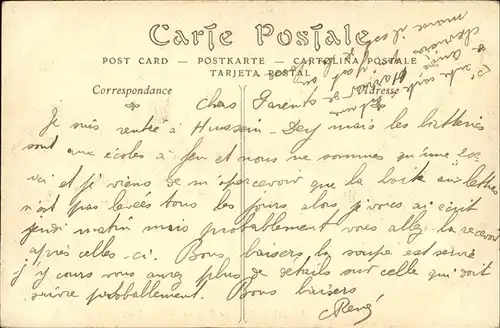 Carte Postale
POST CARD — POSTKARTE — CARTOLINA POSTALE
TARJETA POSTAL
Correspondance
Adresse
Chers Parents
Je suis rentré à Hussein-Dey mais les batteries
sont aux écoles à feu et nous ne sommes qu'une
et je viens de m'apercevoir que la boite aux lettres
n'est pas levées tous les jours alors je vous ai écrit
jeudi matin mais probablement vous allez la recevoir
après celles-ci. Bons baisers, la soupe est servie
j'y cours vous aurez plus de details sur celle qui doit
suivre probablement. Bons baisers
René